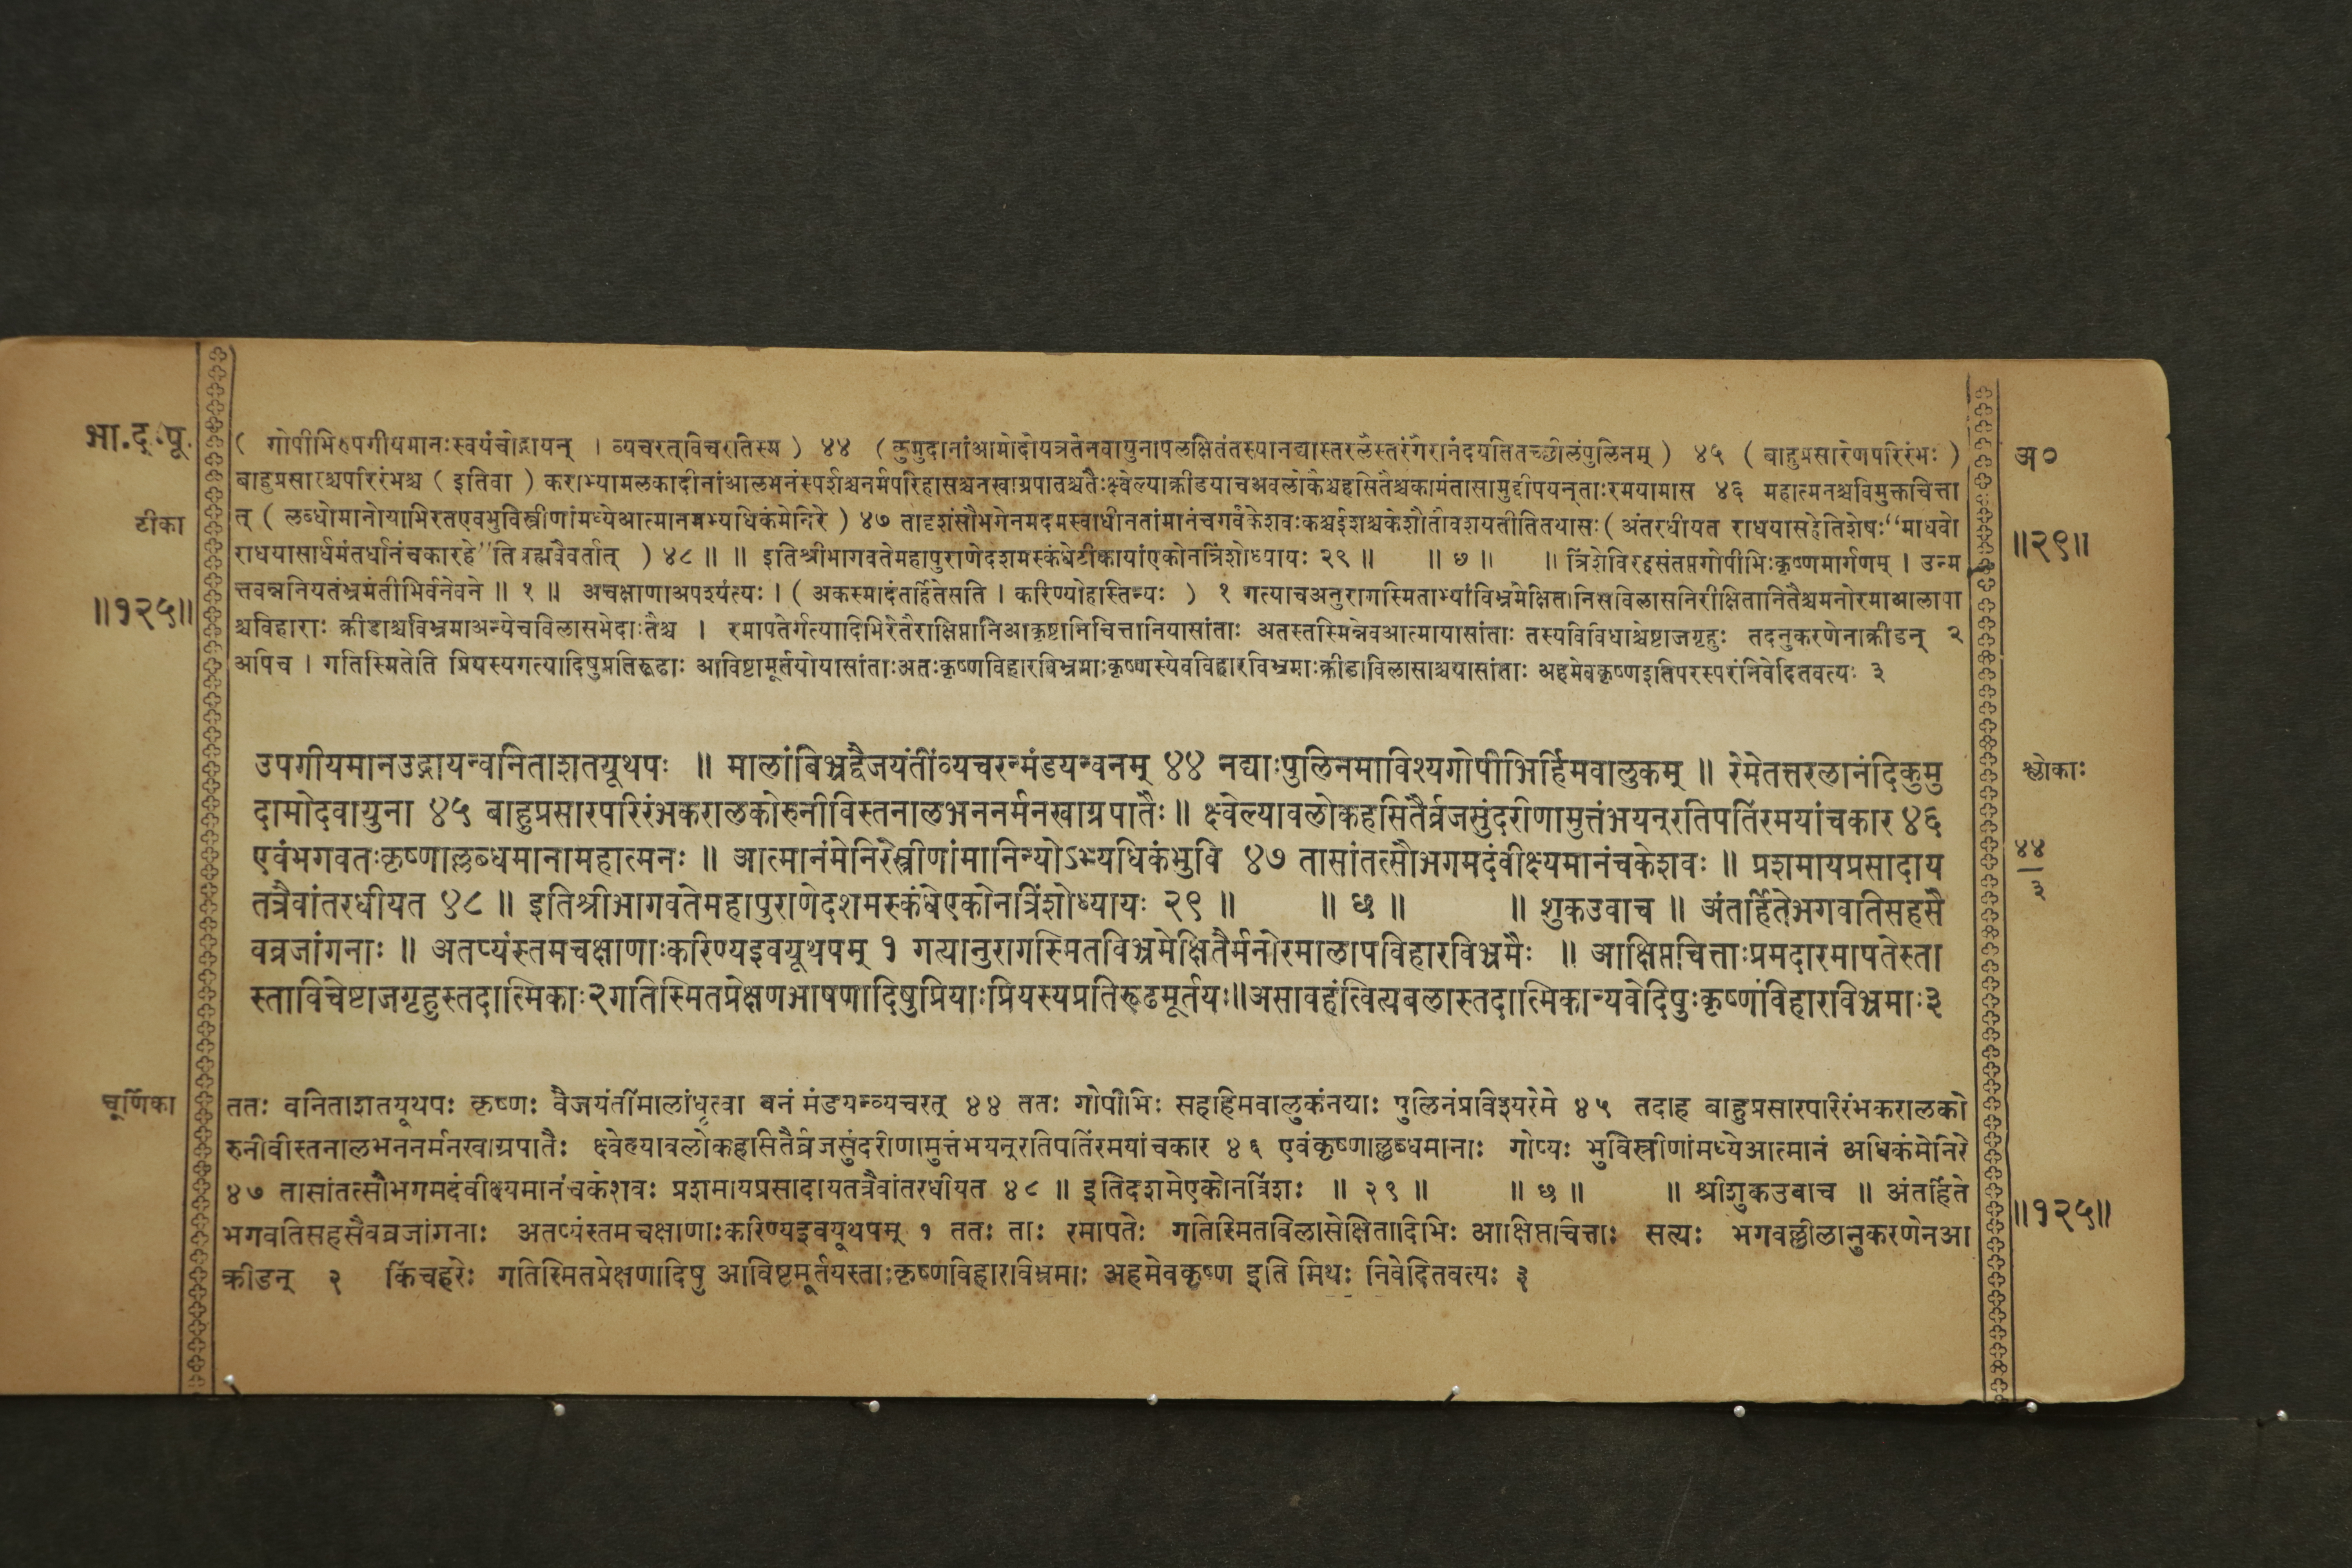 भा.द.पू.
टीका
॥१२५॥
( गोपीभिरुपगीयमानःस्वयंचोद्गायन् । व्यचरत्विचरतिस्म ) ४४ ( कुमुदानांआमोदोयत्रतेनवायुनापलक्षितंतस्यानद्यास्तरलैस्तरंगैरानंदयतितच्छीलंपुलिनम् ) ४५ ( बाहुप्रसारेणपरिरंभः )
बाहुप्रसारश्चपरिरंभश्च ( इतिवा ) कराभ्यामलकादीनांआलभनंस्पर्शश्चनर्मपरिहासश्चनखाग्रपातश्चतैःक्ष्वेल्याक्रीडयाचअवलोकैश्चहसितैश्चकामंतासामुद्दीपयन्ताःरमयामास ४६ महात्मनश्चविमुक्तचित्ता
त् ( लब्धोमानोयाभिरतएवभुविस्त्रीणांमध्येआत्मानमभ्यधिकंमेनिरे ) ४७ तादृशंसौभगेनमदमस्वाधीनतांमानंचगर्वंकेशवःकश्चईशश्चकेशौतौवशयतीतितयासः( अंतरधीयत राधयासहेतिशेषः“माधवो
राधयासार्धमंतर्धानंचकारहे”ति ब्रह्मवैवर्तात् ) ४८ ॥ ॥ इतिश्रीभागवतेमहापुराणेदशमस्कंधेटीकायांएकोनत्रिंशोध्यायः २९ ॥ ॥ छ ॥ ॥ त्रिंशेविरहसंतप्तगोपीभिःकृष्णमार्गणम् । उन्म
त्तवन्ननियतंभ्रमंतीभिर्वनेवने ॥ १ ॥ अचक्षाणाअपश्यंत्यः । ( अकस्मादंतर्हितेसति । करिण्योहस्तिन्यः ) १ गत्याचअनुरागस्मिताभ्यांविभ्रमेक्षितानिसविलासनिरीक्षितानितैश्चमनोरमाआलापा
श्चविहाराः क्रीडाश्चविभ्रमाअन्येचविलासभेदाःतैश्च । रमापतेर्गत्यादिभिरेतैराक्षिप्तानिआकृष्टानिचित्तानियासांताः अतस्तस्मिन्नेवआत्मायासांताः तस्यविविधाश्चेष्टाजगृहुः तदनुकरणेनाक्रीडन् २
अपिच । गतिस्मितेति प्रियस्यगत्यादिषुप्रतिरूढाः आविष्टामूर्तयोयासांताःअतःकृष्णविहारविभ्रमाःकृष्णस्येवविहारविभ्रमाःक्रीडाविलासाश्चयासांताः अहमेवकृष्णइतिपरस्परंनिवेदितवत्यः ३
अ०
॥२९॥
उपगीयमानउद्गायन्वनिताशतयूथपः ॥ मालांबिभ्रद्वैजयंतींव्यचरन्मंडयन्वनम् ४४ नद्याःपुलिनमाविश्यगोपीभिर्हिमवालुकम् ॥ रेमेतत्तरलानंदिकुमु
दामोदवायुना ४५ बाहुप्रसारपरिरंभकरालकोरुनीविस्तनालभननर्मनखाग्रपातैः ॥ क्ष्वेल्यावलोकहसितैर्व्रजसुंदरीणामुत्तंभयन्रतिपतिंरमयांचकार ४६
एवंभगवतःकृष्णाल्लब्धमानामहात्मनः ॥ आत्मानंमेनिरेस्त्रीणांमानिन्योऽभ्यधिकंभुवि ४७ तासांतत्सौभगमदंवीक्ष्यमानंचकेशवः ॥ प्रशमायप्रसादाय
तत्रैवांतरधीयत ४८ ॥ इतिश्रीभागवतेमहापुराणेदशमस्कंधेएकोनत्रिंशोध्यायः २९ ॥ ॥ छ ॥ ॥ शुकउवाच ॥ अंतर्हितेभगवतिसहसै
वव्रजांगनाः ॥ अतप्यंस्तमचक्षाणाःकरिण्यइवयूथपम् १ गत्यानुरागस्मितविभ्रमेक्षितैर्मनोरमालापविहारविभ्रमैः ॥ आक्षिप्तचित्ताःप्रमदारमापतेस्ता
स्ताविचेष्टाजगृहुस्तदात्मिकाः२गतिस्मितप्रेक्षणभाषणादिषुप्रियाःप्रियस्यप्रतिरूढमूर्तयः॥असावहंत्वित्यबलास्तदात्मिकान्यवेदिषुःकृष्णविहारविभ्रमाः३
श्लोकाः
४४
३
चूर्णिका
ततः वनिताशतयूथपः कृष्णः वैजयंतींमालांधृत्वा वनं मंडयन्व्यचरत् ४४ ततः गोपीभिः सहहिमवालुकंनद्याः पुलिनंप्रविश्यरेमे ४५ तदाह बाहुप्रसारपरिरंभकरालको
रुनीवीस्तनालभननर्मनखाग्रपातैः क्ष्वेल्यावलोकहासितैर्व्रजसुंदरीणामुत्तंभयन्रतिपतिंरमयांचकार ४६ एवंकृष्णाल्लब्धमानाः गोप्यः भुविस्त्रीणांमध्येआत्मानं अधिकंमेनिरे
४७ तासांतत्सौभगमदंवीक्ष्यमानंचकेशवः प्रशमायप्रसादायतत्रैवांतरधीयत ४८ ॥ इतिदशमेएकोनत्रिंशः ॥ २९ ॥ ॥ छ ॥ ॥ श्रीशुकउवाच ॥ अंतर्हिते
भगवतिसहसैवव्रजांगनाः अतप्यंस्तमचक्षाणाःकरिण्यइवयूथपम् १ ततः ताः रमापतेः गतिस्मितविलासेक्षितादिभिः आक्षिप्तचित्ताः सत्यः भगवल्लीलानुकरणेनआ
क्रीडन् २ किंचहरेः गतिस्मितप्रेक्षणादिषु आविष्टमूर्तयस्ताःकृष्णविहारविभ्रमाः अहमेवकृष्ण इति मिथः निवेदितवत्यः ३
॥१२५॥